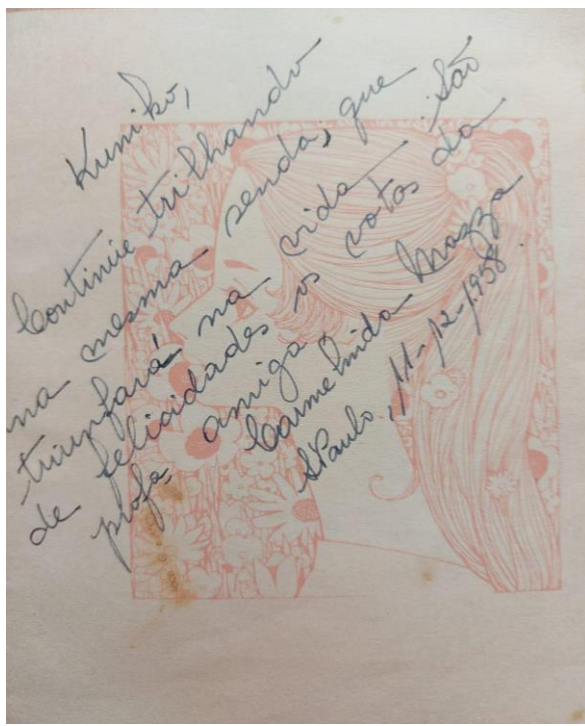 Kuniko,
Continue trilhando
na mesma senda, que
triunfará na vida. São
de felicidades os votos da
profa. amiga
Carmelinda Mazza
S. Paulo, 11-12-1958.